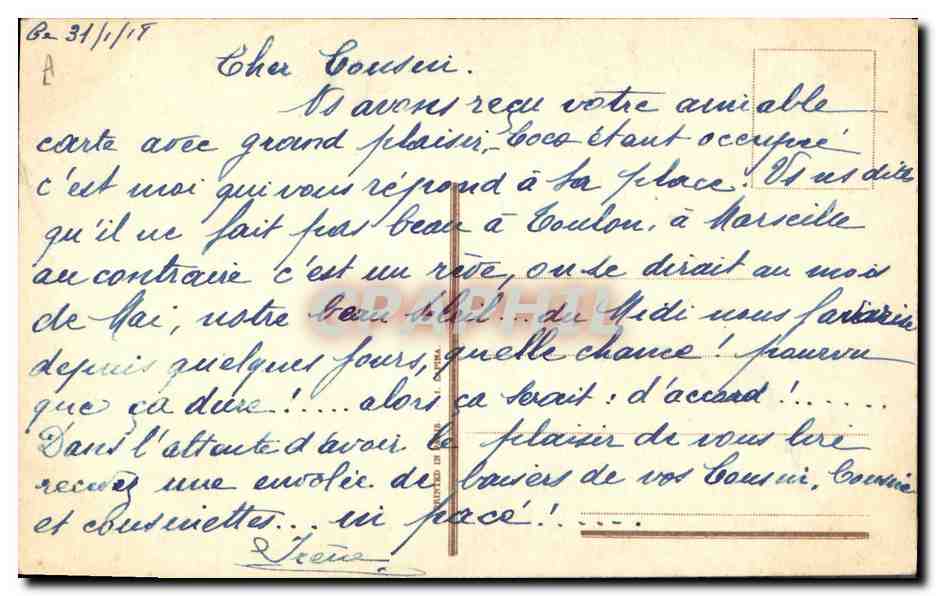 Ce 31/1/18
Cher Cousin.
Vs avons reçu votre aimable
carte avec grand plaisir, Coco étant occupé
c'est moi qui vous répond à sa place. Vs ns dites
qu'il ne fait pas beau à Toulon, à Marseille
au contraire c'est un rêve, on se dirait au mois
de Mai, notre beau soleil... du Midi nous favorise
depuis quelques jours, quelle chance! pourvu
que ça dure!..... alors ça serait: d'accord!.......
Dans l'attente d'avoir le plaisir de vous lire
recevez une envolée de baisers de vos Cousin, Cousine
et cousinettes...
Irène
CARPHIL
PRINTED IN